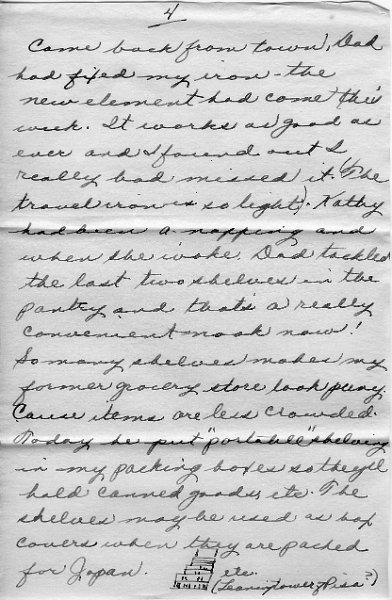 4
Came back from town, Dad
had fixed my iron - the
new element had come this
week. It works as good as
ever and I found out I
really had missed it. (The
travel iron is so light). Kathy
had been a-napping and
when she woke Dad tackled
the last two shelves in the
pantry and that's a really
convenient nook now!
So many shelves makes my
former grocery store look puny
Cause items are less crowded.
Today he put "portable" shelving
in my packing boxes so they'll
hold canned goods, etc. The
shelves may be used as box
covers when they are packed
for Japan. etc.
(Leaning tower of Pisa?)